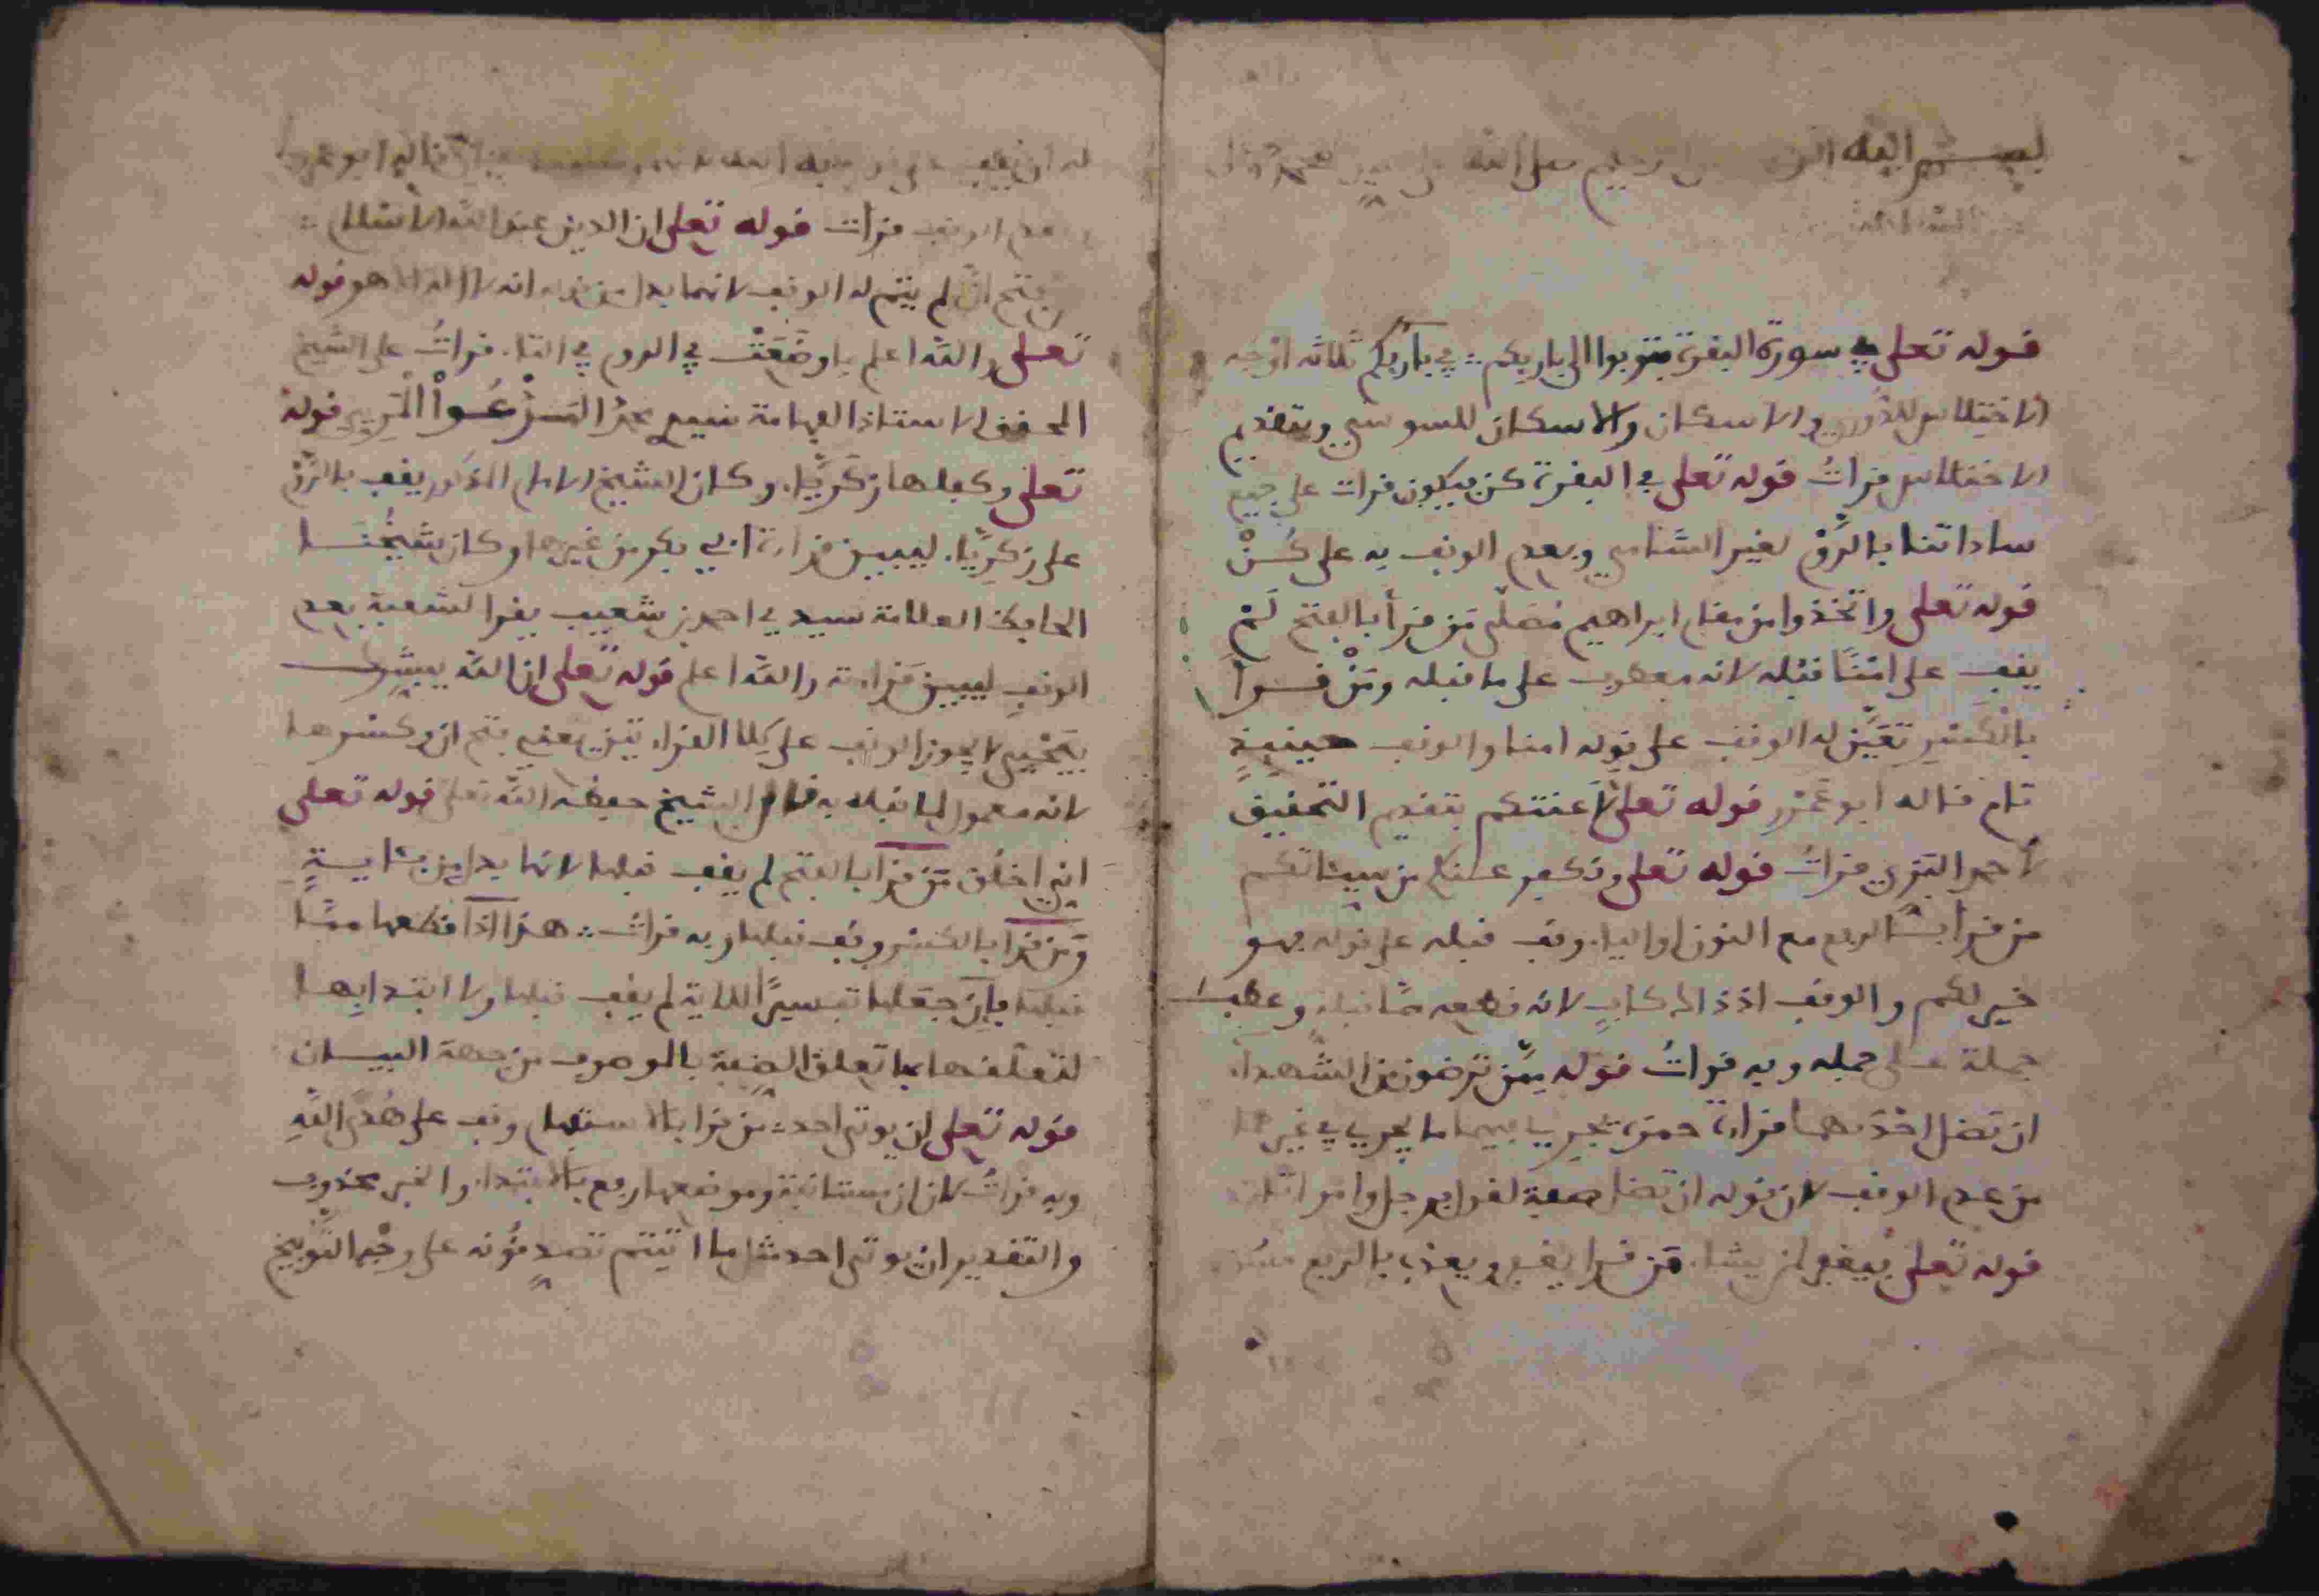 بسم الله الرحمن الرحيم صلى الله على سيدنا محمد وءال
قوله تعلى في سورة البقرة فتوبوا الى باريكم في باريكم ثلاثة اوجه
الاختلاس للدوري والاسكان والاسكان للسوسي وبتقديم
الاختلاس قرات قوله تعلى في البقرة كن فيكون قرات على جميع
ساداتنا بالرَّوْم لغير الشامي وبعدم الوقف به على كُنْ
قوله تعلى واتخذوا من مقام ابراهيم مُصَلّى مَن قرأ بالفتح لَمْ
يقف على امْنًا قبله لانه معطوف على ما قبله ومَنْ قرأ
بالْكَسْرِ تعَيَّن له الوقف على قوله امنا والوقف حينيذٍ
تام قاله ابو عَمْرٍو قوله تعلى لأعنتكم بتقديم التحقيق
لأحمد البزي قراتُ قوله تعلى ونكفر عنكم من سيئاتكم
من قرأ بالرفع مع النون او الياء وقف قبله على قوله فهو
خير لكم والوقف اذ ذاك كافٍ لانه قطعه ممَّا قبله وعطف
جملة على جملة وبه قراتُ قوله مِمَّن ترضون من الشُّهداء
ان تضل احْدَىهما قراءة حمزة تجري فيها ما يجري في غيرها
من عدم الوقف لان قوله ان تضل صفة لقوله فرجل وامراتان
قوله تعلى فيغفر لمن يشاء مَن قرا يغفر ويعذب بالرفع
له ان يقف على قوله به الله قاله ابو عمرو
وبعدم الوقف قرات قوله تعلى ان الدين عند الله الاسْلَام
من فتح انَّ لم يتم له الوقف لانها بدل من قوله انه لا اله الا هو قوله
تعلى والله اعلم بما وضَعَتْ في الروم في التاء قراتُ على الشيخ
المحقق الاستاذ الفهامة سعيد قوله
تعلى وكفلها زكَريَّا وكان الشيخ الامام المذكور يقف بالرَّوْم
على زكرِيَّا ليبين قراءة ابي بكر من غيرها وكان شيْخُنا
الحافظ العلامة سيدي احمد بن شعيب يقرا لشعبة بعدم
الوقفِ ليبين قراءته والله اعلم قوله تعلى ان الله يبشرك
بيَحْيِى لا يجوز الوقف على كِلا القراءتين يعني بفتح ان وكسرها
لانه معمول لما قبله به قال الشيخ حفظه الله تعلى قوله تعلى
اني اخلق مَن قرا بالفتح لم يقف قبلها لانها بدل من بئايةٍ
ومَن قرا بالكسْر وقف قبلها وبه قرات هذا اذا قطعها ممَّا
قبلها فإن جعلها تفسيرًا للاية لم يقف قبلها ولا ابتدا بها
لتعلقها بما تعلق الصفة بالموصوف من جهة البيان
قوله تعلى ان يوتى احد مَن قرا بالاستفهام وقف على هُدَى اللهِ
وبه قراتُ لان ان مستانفة وموضعها رفع بالابتداء والخبر محذوف
والتقدير ان يوتى احد مثل ما اتيتم تصدقونه على وجْه التَّوبيخ